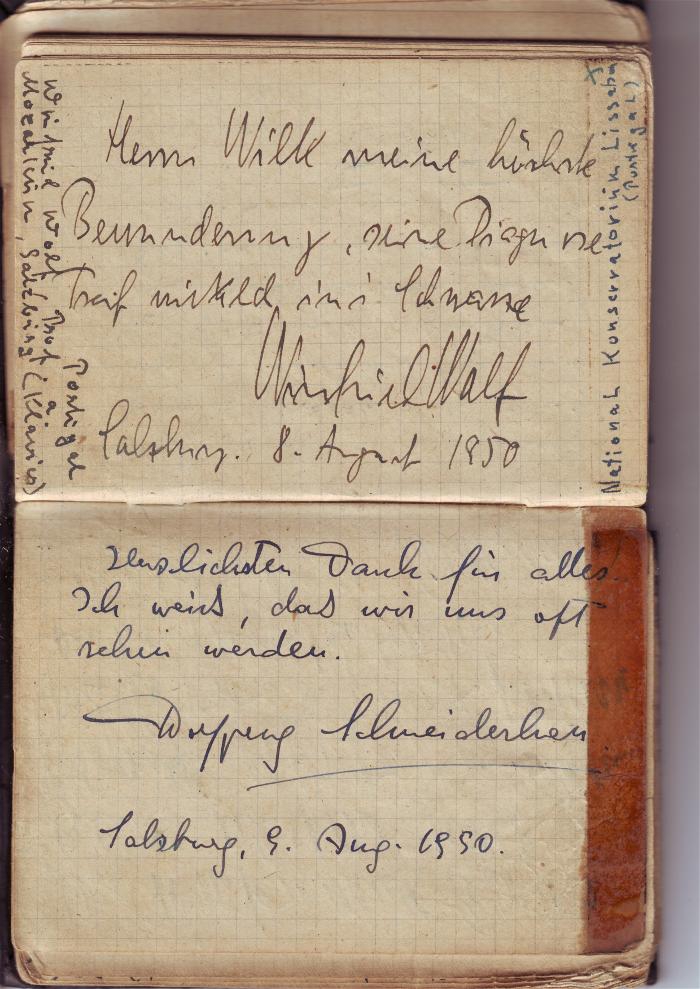 Herrn Wilk meine höchste
Bewunderung, seine Diagnose
traf mitkeld ins Schwarze
Winfried Wolf
Salzburg. 8. August 1950
Winfried Wolf Prof. a
Mozarteum, Salzburg (Klavier)
Portugal
National Konservatorium Lissabon
(Portugal)
Herzlichsten Dank für alles.
Ich weiß, daß wir uns oft
sehen werden.
Wolfgang Schneiderhan
Salzburg, 9. Aug. 1950.